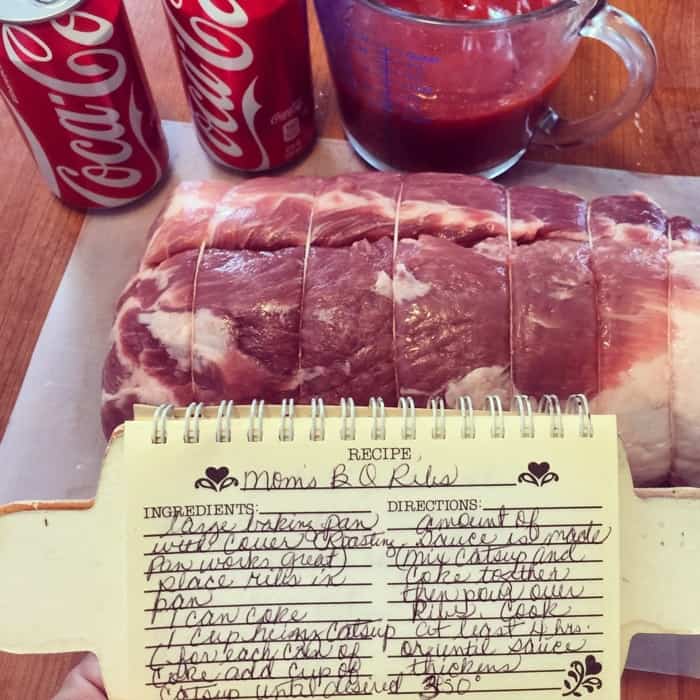 Coca-Cola
Coca-Cola
RECIPE
Mom's B Q Ribs
INGREDIENTS:
large baking pan
with cover (Roasting
pan works great)
place ribs in
pan
1 can coke
1 cup heinz catsup
(for each can of
coke add cup of
catsup until desired
DIRECTIONS:
amount of
sauce is made
(mix catsup and
coke together
then pour over
Ribs. Cook
at least 4 hrs.
or until sauce
thickens
350°